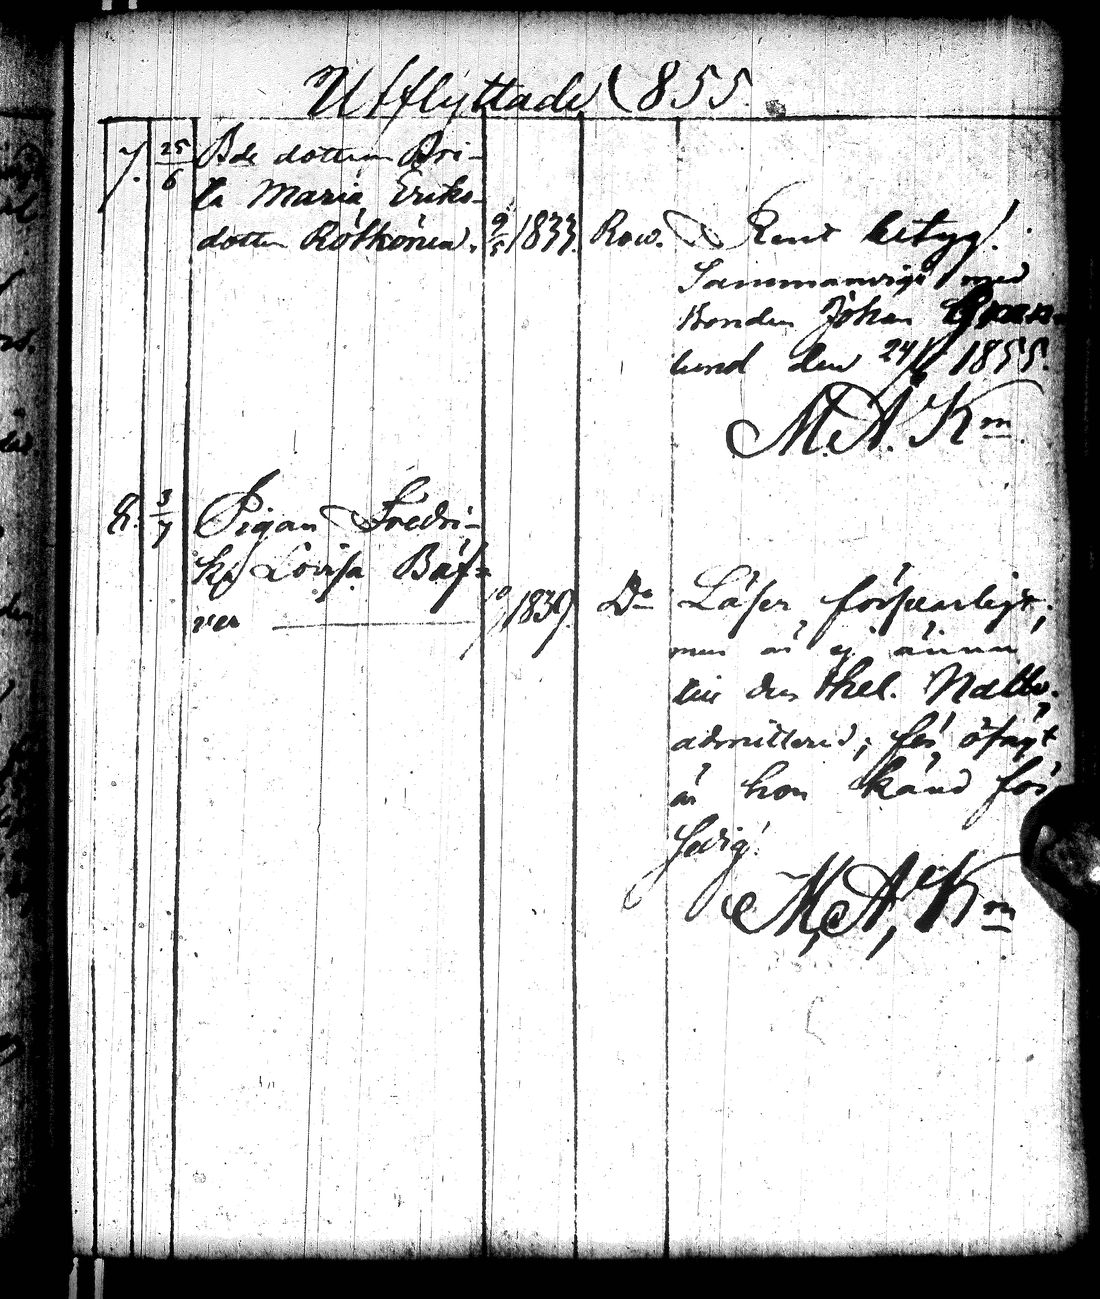 Utflyttade 1855.
7. 25/6 Bde dottern Bri-
ta Maria Eriks-
dotter Rötkönen. 9/5 1833. Row. Rent betyg!
Sammanvigd med
Bonden Johan Gran-
lund den 24/6 1855.
M. A. Km.
8. 3/7 Pigan Fredri-
ka Lovisa Bäf-
ver 1839. Do Läser försvarligt;
men är ej ännu
till den hel. Nattv.
admitterad; för öfrigt
är hon känd för
sedig!
M, A, Km.